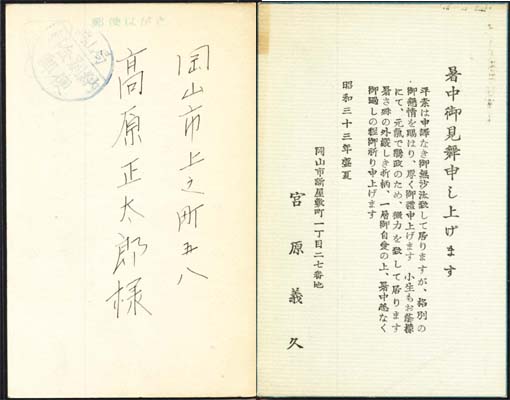 郵便はがき
岡山市上之町五八
高原正太郎様
暑中御見舞申し上げます
平素は申譯なき御無沙汰致して居りますが、格別の
御熱情を賜はり、厚く御禮申上げます 小生もお蔭様
にて、元氣で縣政のため、微力を致して居ります
暑さ殊の外嚴しき折柄、一層御自愛の上、暑中恙なく
御過しの程御祈り申上げます
昭和三十三年盛夏
岡山市新屋敷町一丁目二七番地
宮原義久